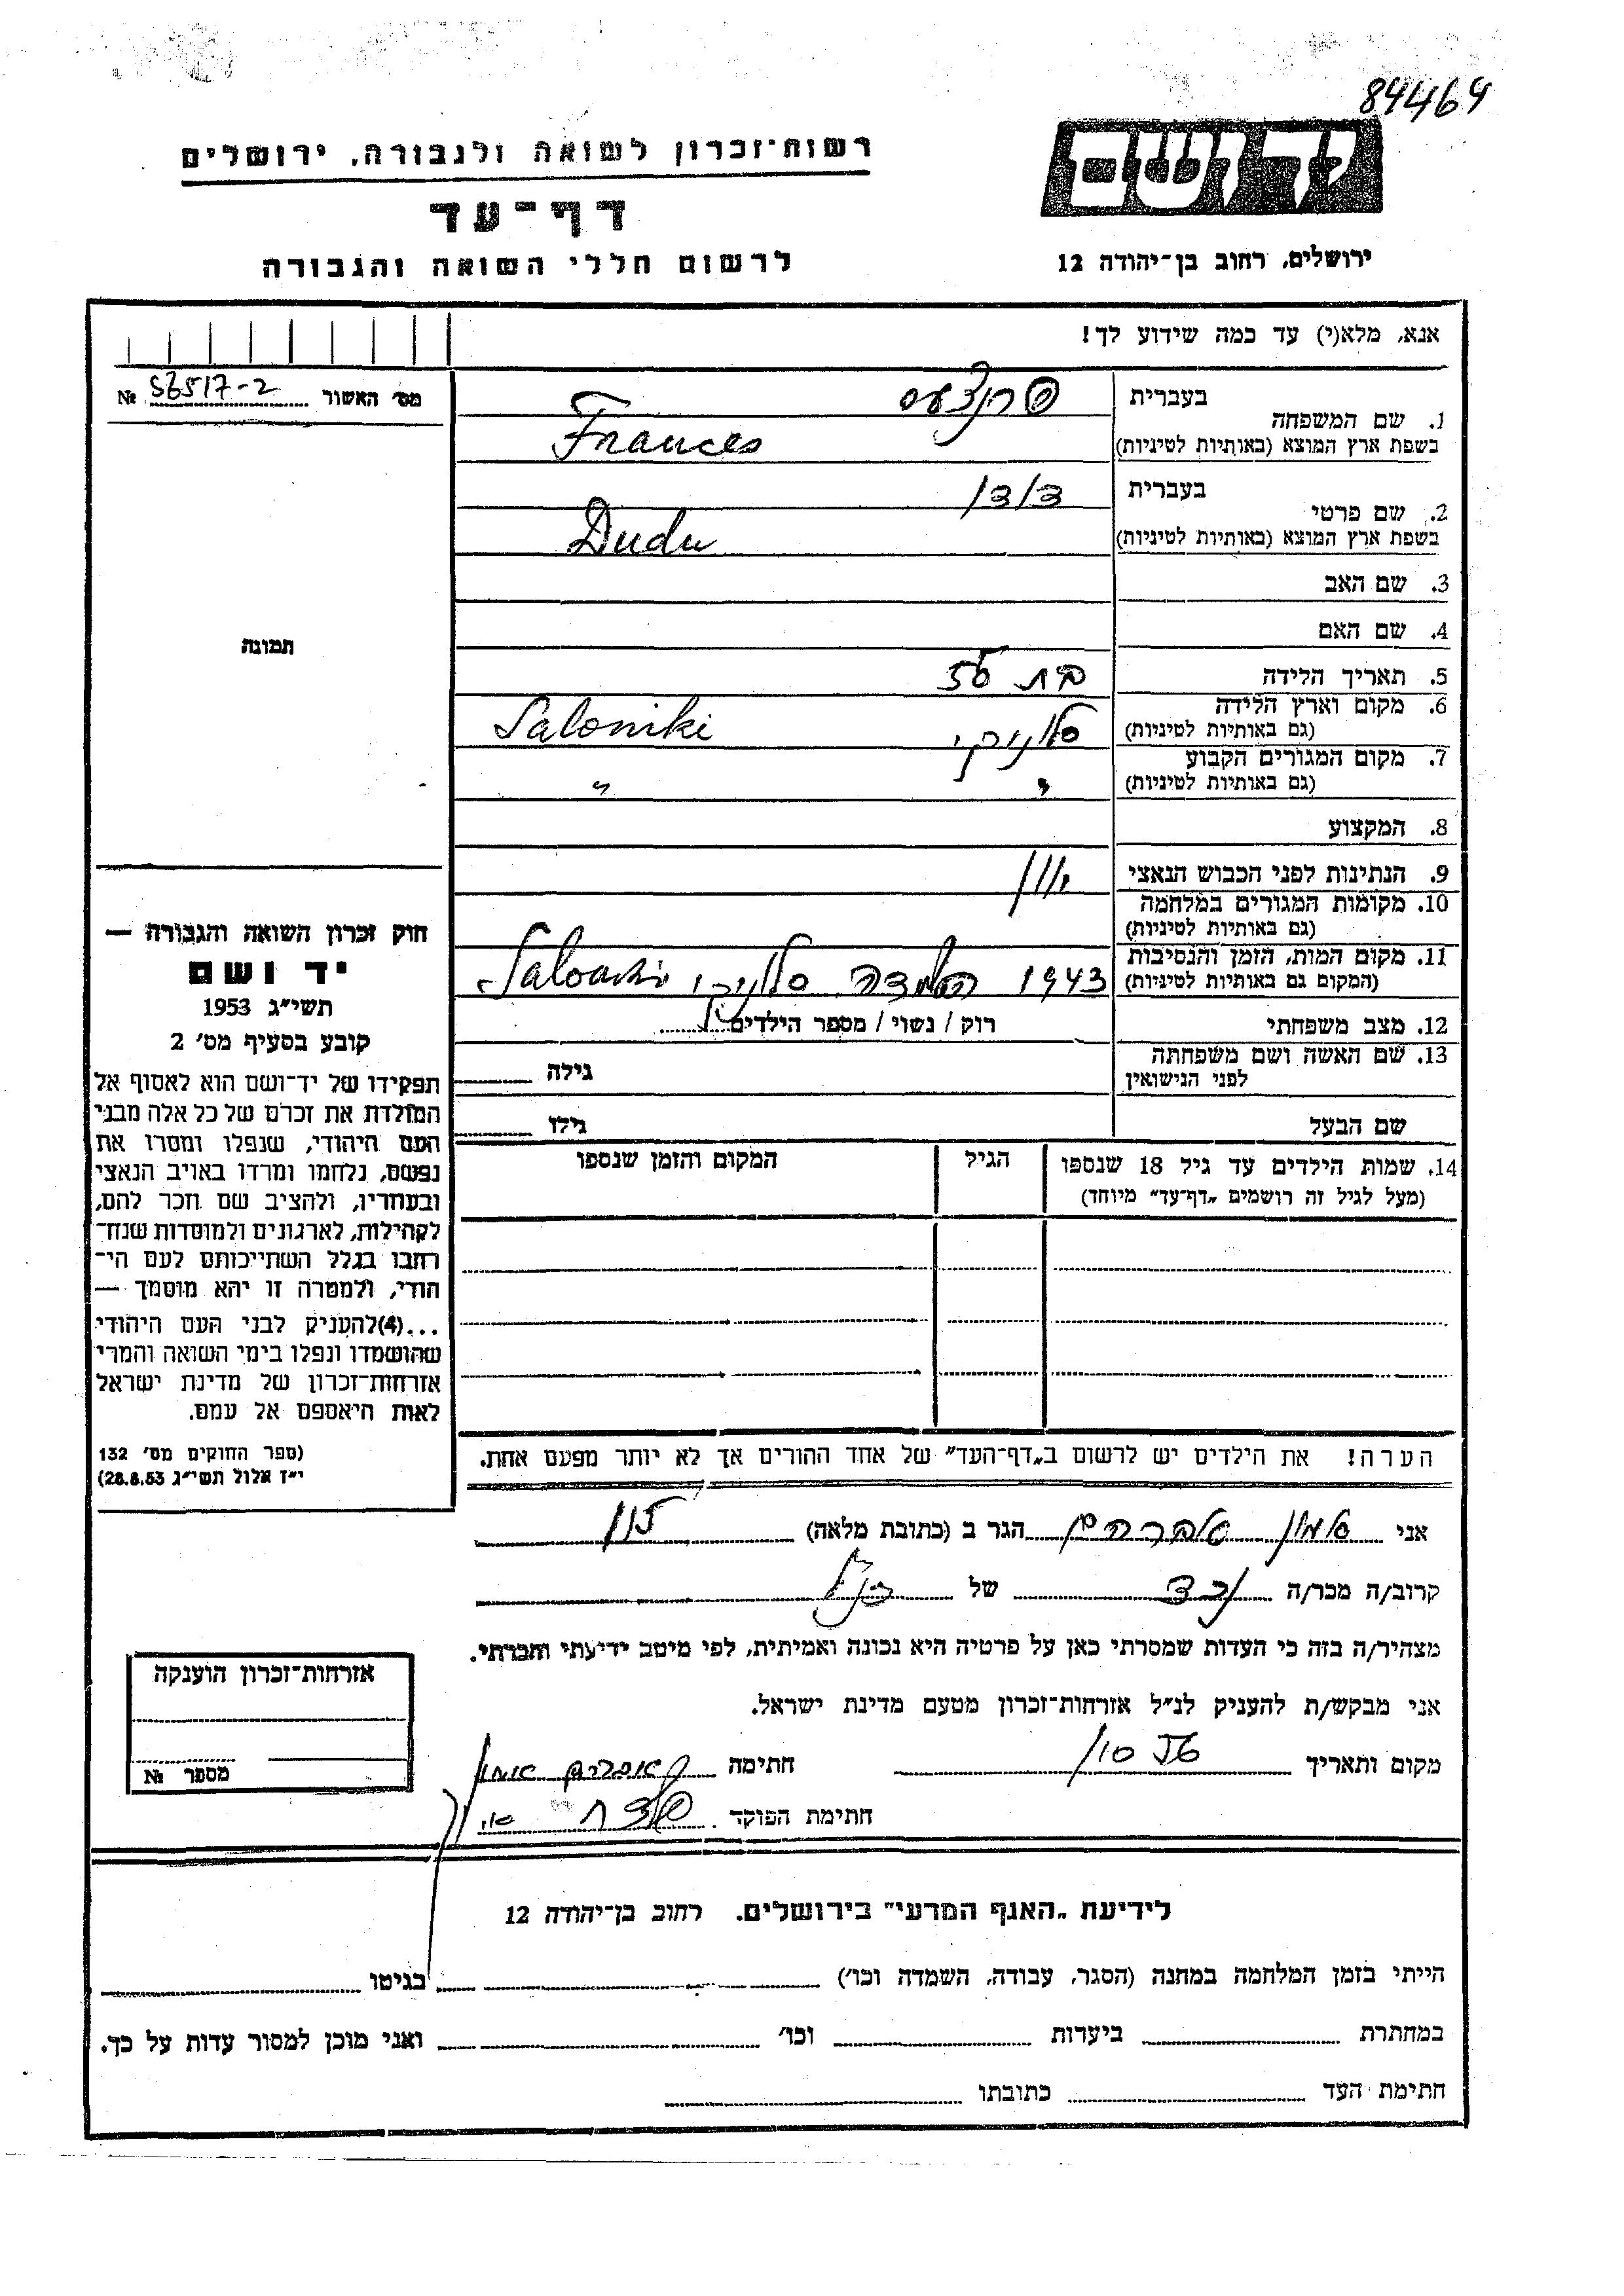 84469
יד ושם
רשות־זכרון לשואה ולגבורה, ירושלים
דף־עד
לרשום חללי השואה והגבורה
ירושלים, רחוב בן־יהודה 12
אנא, מלא(י) עד כמה שידוע לך!
מס׳ האשור № 56517-2
תמונה
1. שם המשפחה
בעברית
בשפת ארץ המוצא (באותיות לטיניות) Frances
2. שם פרטי
בעברית דודו
בשפת ארץ המוצא (באותיות לטיניות) Dudu
3. שם האב
4. שם האם
5. תאריך הלידה בת
6. מקום וארץ הלידה סלוניקי Saloniki
(גם באותיות לטיניות)
7. מקום המגורים הקבוע " "
(גם באותיות לטיניות)
8. המקצוע
9. הנתינות לפני הכבוש הנאצי יוון
10. מקומות המגורים במלחמה
(גם באותיות לטיניות)
11. מקום המות, הזמן והנסיבות 1943 השמדה סלוניקי
(המקום גם באותיות לטיניות)
12. מצב משפחתי רוק / נשוי / מספר הילדים
13. שם האשה ושם משפחתה גילה
לפני הנישואין
שם הבעל גילו
14. שמות הילדים עד גיל 18 שנספו הגיל המקום והזמן שנספו
(מעל לגיל זה רושמים „דף־עד״ מיוחד)
הערה! את הילדים יש לרשום ב„דף־העד״ של אחד ההורים אך לא יותר מפעם אחת.
חוק זכרון השואה והגבורה —
יד ושם
תשי״ג 1953
קובע בסעיף מס׳ 2
תפקידו של יד־ושם הוא לאסוף אל
המולדת את זכרם של כל אלה מבני
העם היהודי, שנפלו ומסרו את
נפשם, נלחמו ומרדו באויב הנאצי
ובעוזריו, ולהציב שם וזכר להם,
לקהילות, לארגונים ולמוסדות שנח־
רבו בגלל השתייכותם לעם הי־
הודי, ולמטרה זו יהא מוסמך —
...(4)להעניק לבני העם היהודי
שהושמדו ונפלו בימי השואה והמרי
אזרחות־זכרון של מדינת ישראל
לאות היאספם אל עמם.
(ספר החוקים מס׳ 132
י״ז אלול תשי״ג 28.8.53)
אני אברהם הגר ב (כתובת מלאה)
קרוב/ה מכר/ה נכד של הנ״ל
מצהיר/ה בזה כי העדות שמסרתי כאן על פרטיה היא נכונה ואמיתית, לפי מיטב ידיעתי והכרתי.
אני מבקש/ת להעניק לנ״ל אזרחות־זכרון מטעם מדינת ישראל.
מקום ותאריך חתימה
חתימת הפוקד
אזרחות־זכרון הוענקה
מספר №
לידיעת „האגף המדעי״ בירושלים. רחוב בן־יהודה 12
הייתי בזמן המלחמה במחנה (הסגר, עבודה, השמדה וכו׳) בגיטו
במחתרת ביערות וכו׳ ואני מוכן למסור עדות על כך.
חתימת העד כתובתו